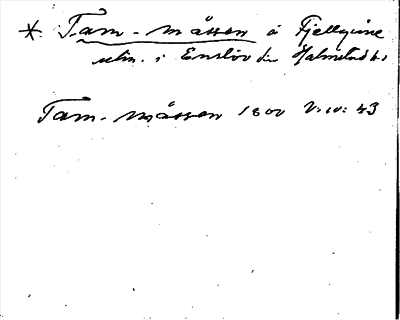 * Tam-måsen å Fjellgine
utm. i Enslöv din Halmstad h.
Tam-måssen 1800 V:10:43